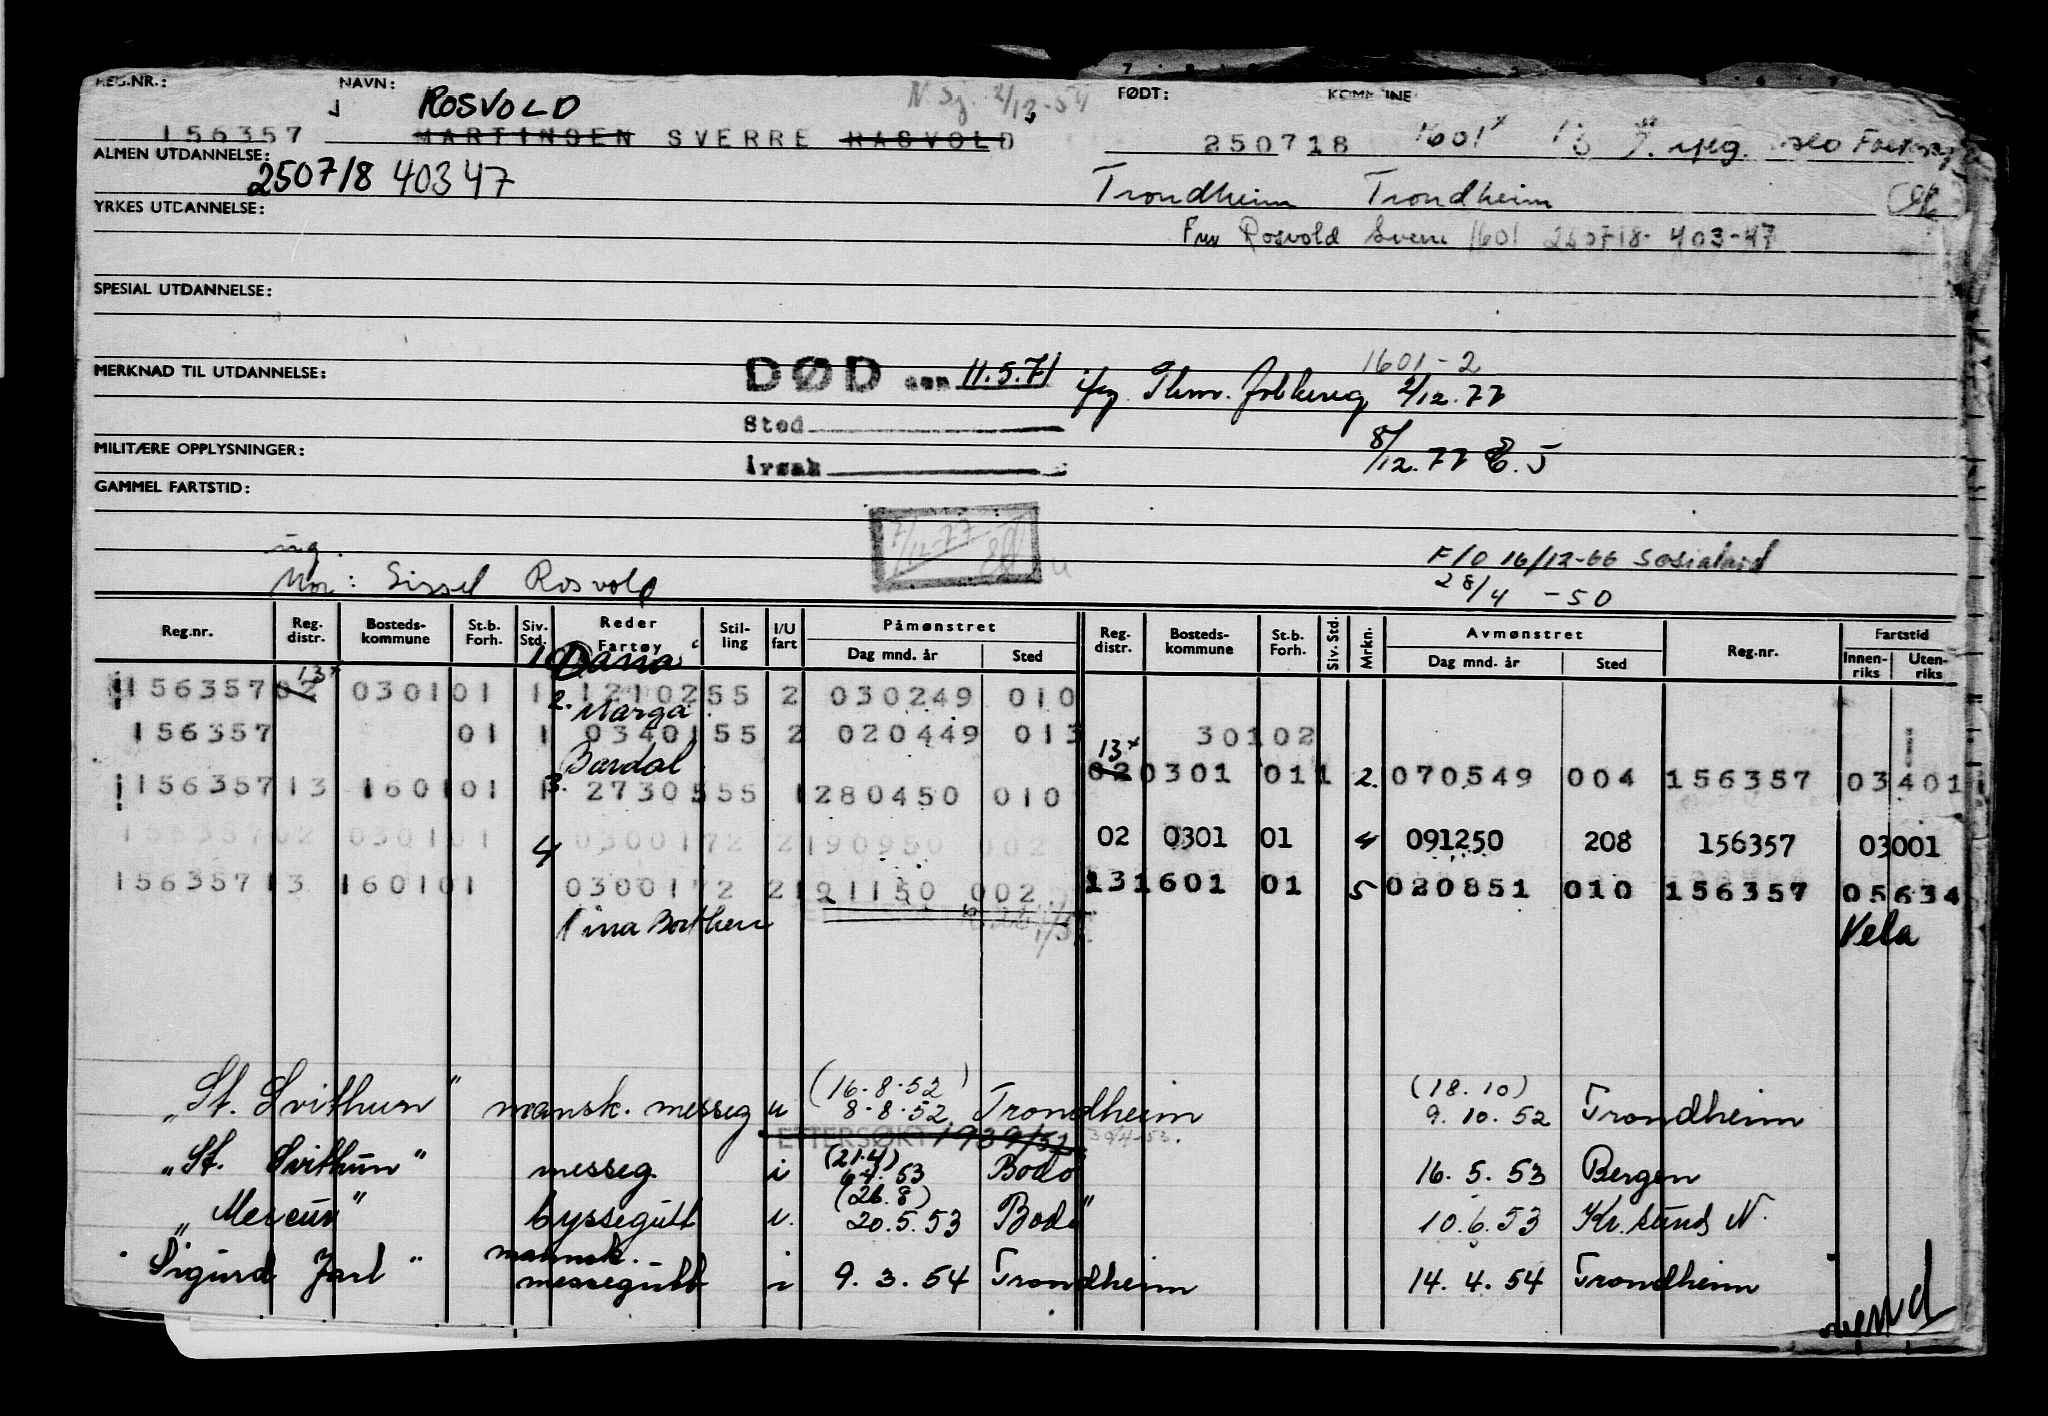 REG.NR.: NAVN: N. Sj. 2/12-54 FØDT: KOMMUNE
ROSVOLD
156357 MARTINSEN SVERRE RASVOLD 250718 1601
ALMEN UTDANNELSE:
250718 40347 Trondheim Trondheim
YRKES UTDANNELSE:
Rosvold Sverre 1601 250718-403-47
SPESIAL UTDANNELSE:
1601-2
MERKNAD TIL UTDANNELSE: DØD den 11.5.71 2/12.77
Sted
MILITÆRE OPPLYSNINGER: Årsak 8/12.77 E.J
GAMMEL FARTSTID:
7/12-77
ug.
F/O 16/12-66 Sosialard
Mor: Sissel Rosvold 28/4 -50
Reg.nr. Reg. distr. Bosteds-kommune St.b. Forh. Siv. Std. Reder Fartøy Stil-ling I/U fart Påmønstret Dag mnd. år Sted Reg. distr. Bosteds-kommune St.b. Forh. Siv. Std. Mrkn. Avmønstret Dag mnd. år Sted Reg.nr. Fartstid Innen-riks Uten-riks
1 Dania
13x
156357 02 0301 01 1 12102 55 2 030249 010
2. Marga
156357 01 1 03401 55 2 020449 013 30102
Bardal 13x
02 0301 01 1 2. 070549 004 156357 03401
156357 13 1601 01 1 3. 27305 55 1 280450 010
156357 02 0301 01 03001 72 2 190950 002 02 0301 01 4 091250 208 156357 03001
4
156357 13 1601 01 03001 72 2 191150 002 13 1601 01 5 020851 010 156357 05634
Vela
(16.8.52) (18.10)
"St. Svithun" mansk. messeg u 8.8.52 Trondheim 9.10.52 Trondheim
ETTERSØKT 1939/52 30/4-53.
(21.4)
"St. Svithun" messeg. i 53 Bodø 16.5.53 Bergen
(26.8)
"Mercur" byssegutt i. 20.5.53 Bodø 10.6.53 Kr.sund N.
mannsk.
"Sigurd Jarl" messegutt i 9.3.54 Trondheim 14.4.54 Trondheim
vend